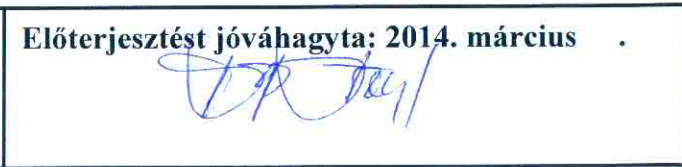 Előterjesztést jóváhagyta: 2014. március .